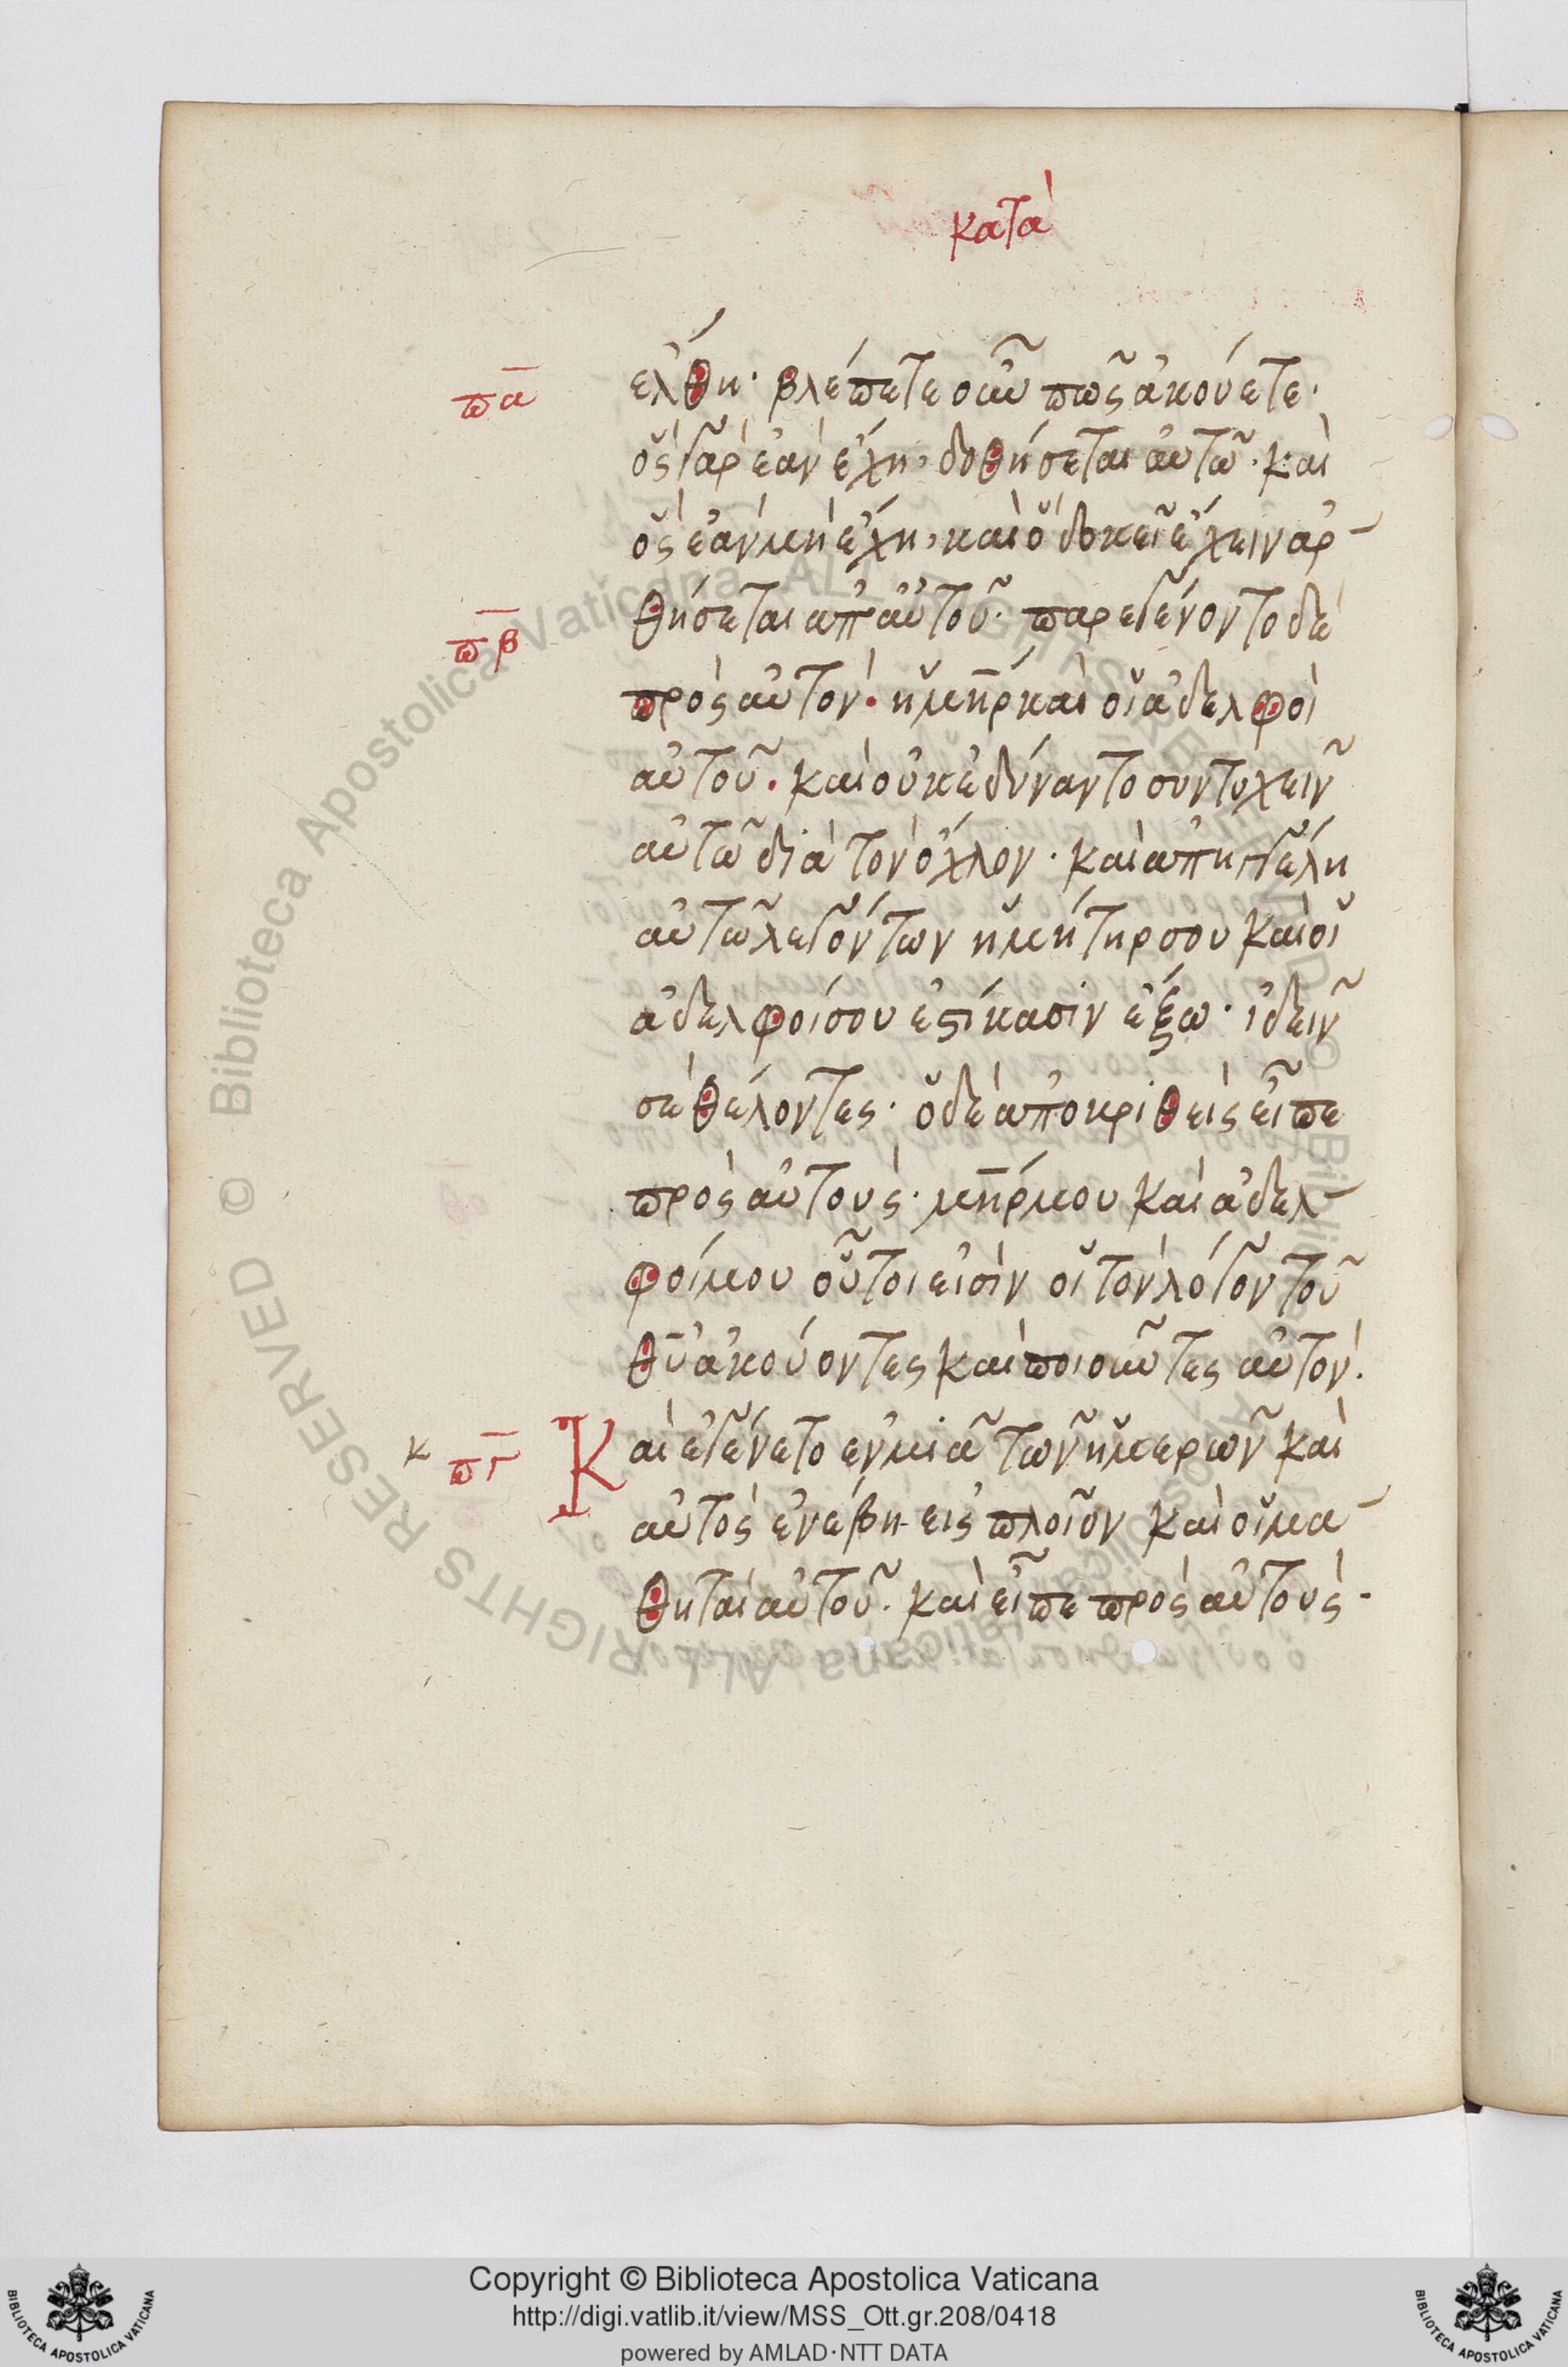 κατὰ
π̅α̅ ἔλθη· βλέπετε οὖν πῶς ἀκούετε·
ὃς γὰρ ἐὰν ἔχη, δοθήσεται αὐτῶ· καὶ
ὃς ἐὰν μὴ ἔχη, καὶ ὃ δοκεῖ ἔχειν ἀρ-
π̅β̅ θήσεται ἀπ' αὐτοῦ· παρεγένοντο δὲ
πρὸς αὐτὸν· ἡ μη̅ρ καὶ οἱ ἀδελφοὶ
αὐτοῦ. καὶ οὐκ ἐδύναντο συντυχεῖν
αὐτῶ διὰ τὸν ὄχλον· καὶ ἀπηγγέλη
αὐτῶ λεγόντων ἡ μήτηρ σου καὶ οἱ
ἀδελφοί σου ἑστήκασιν ἔξω· ἰδεῖν
σὲ θέλοντες· ὁ δὲ ἀποκριθεὶς εἶπε
πρὸς αὐτούς· μη̅ρ μου καὶ ἀδελ-
φοί μου οὗτοι εἰσὶν οἱ τὸν λόγον τοῦ
θ̅υ̅ ἀκούοντες καὶ ποιοῦντες αὐτόν.
κ π̅γ̅ Καὶ ἐγένετο ἐν μιᾶ τῶν ἡμερῶν καὶ
αὐτὸς ἐνέβη εἰς πλοῖον καὶ οἱ μα-
θηταὶ αὐτοῦ. καὶ εἶπε πρὸς αὐτούς·
© Biblioteca Apostolica Vaticana ALL RIGHTS RESERVED © Biblioteca Apostolica Vaticana ALL RIGHTS RESERVED
Copyright © Biblioteca Apostolica Vaticana
http://digi.vatlib.it/view/MSS_Ott.gr.208/0418
powered by AMLAD·NTT DATA
BIBLIOTECA APOSTOLICA VATICANA
BIBLIOTECA APOSTOLICA VATICANA